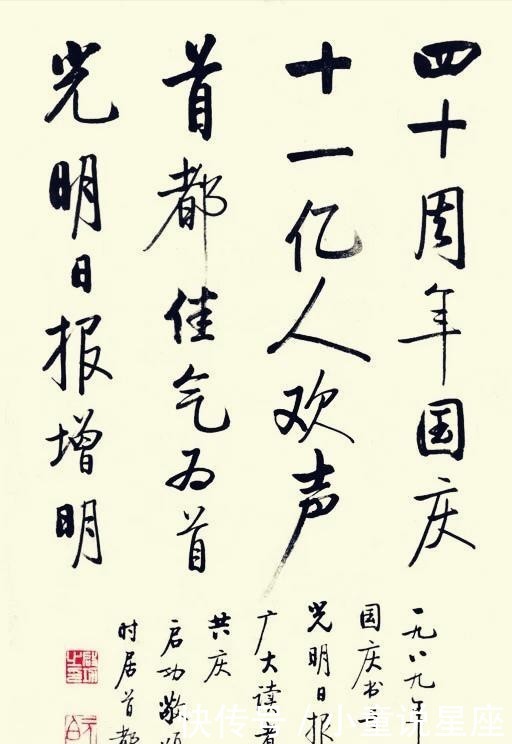 四十周年国庆
十一亿人欢声
首都佳气为首
光明日报增明
一九八九年
国庆书
光明日报
广大读者
共庆
启功敬颂
时居首都
快传号 / 小童说星座